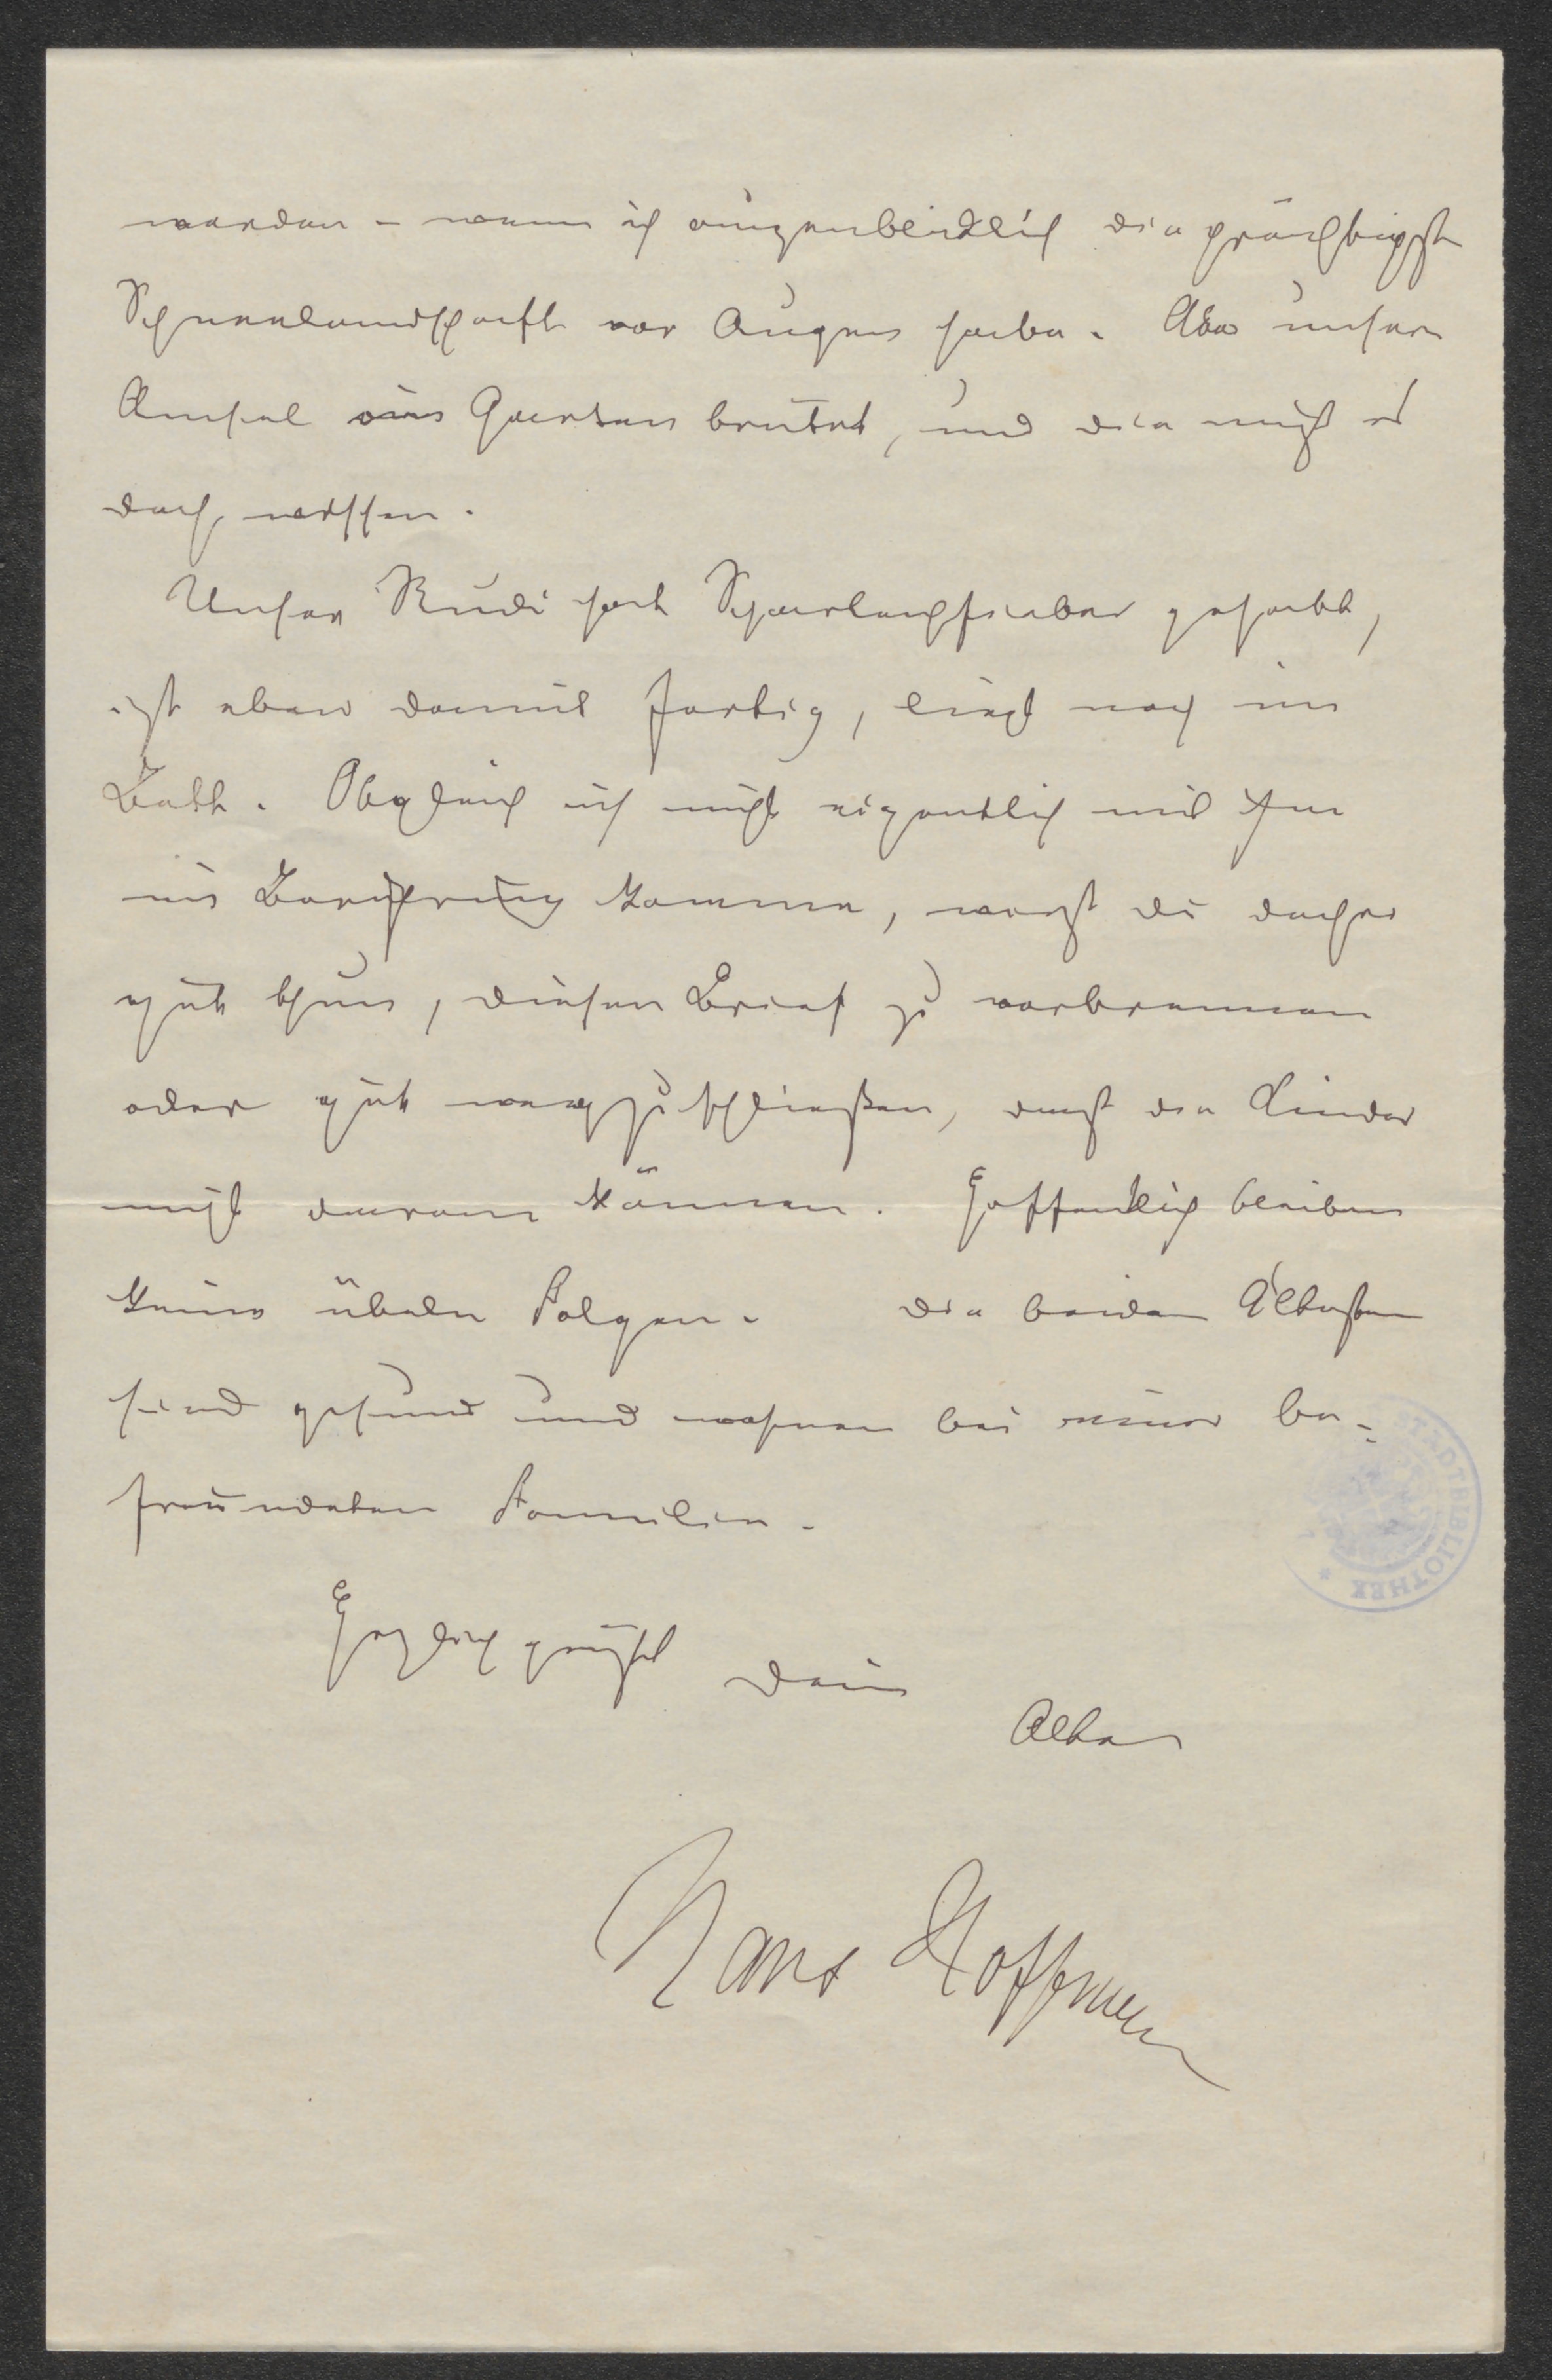 werden – wenn ich augenblicklich die prächtigste
Schneelandschaft vor Augen habe. Aber unsere
Amsel im Garten brütet, und die muß es
doch wissen.
Unser Rudi hat Scharlachfieber gehabt,
ist eben damit fertig, liegt noch im
Bett. Obgleich ich nicht eigentlich mit ihm
in Berührung komme, wirst du daher
gut thun, diesen Brief zu verbrennen
oder gut wegzuschließen, daß die Kinder
nicht daran können. Hoffentlich bleiben
keine übeln Folgen. Die beiden Ältesten
sind gesund und wohnen bei einer be-
freundeten Familie.
Herzlich grüßt Dein
Alter
Hans Hoffmann
STADTBIBLIOTHEK